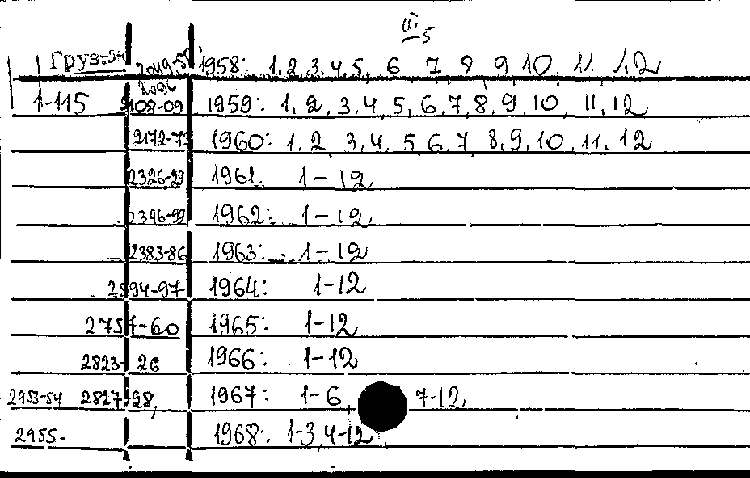 5
Груз-54 1958: 1, 2, 3, 4, 5, 6 7, 8 9, 10 11, 12
1-115 2108-09 1959: 1, 2, 3, 4, 5, 6, 7, 8, 9, 10, 11, 12
2172-73 1960: 1, 2 3, 4, 5 6, 7 8, 9, 10, 11, 12
1961. 1-12
1962: 1-12
2383-86 1963: 1-12
2594-97 1964: 1-12
2757-60 1965: 1-12
2823-26 1966: 1-12
2953-54 2827-28, 1967: 1-6, 7-12,
2955- 1968: 1-3 4-12